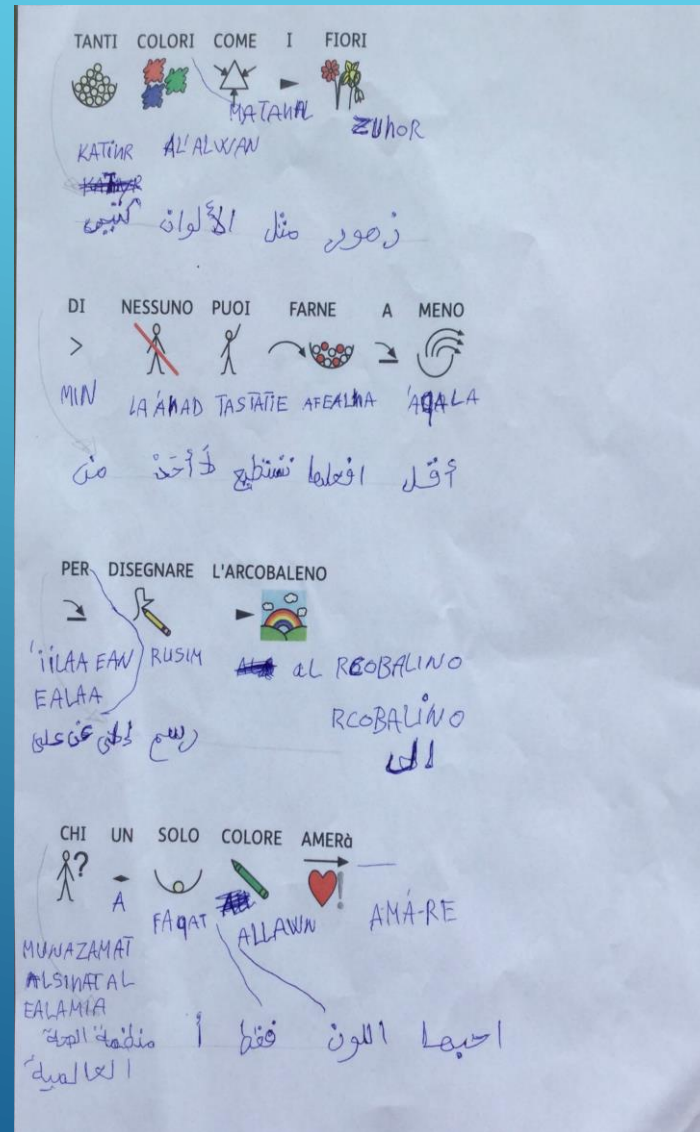 TANTI COLORI COME I FIORI
MATAHAL
ZUhOR
KATIHR AL'ALWAN
زهور مثل الألوان كثير
DI NESSUNO PUOI FARNE A MENO
MIN LA'AHAD TASTATIE AFEALHA 'AQALA
أقل افعلها تستطيع لَا أَحَدْ من
PER DISEGNARE L'ARCOBALENO
'iiLAA EAN RUSIM aL RCOBALINO
EALAA RCOBALINO
رسم إلى عن على
CHI UN SOLO COLORE AMERà
A FAQAT ALLAWN AMÁ-RE
MUNAZAMAT
ALSIHAT AL
EALAMIA
احبها اللون فقط أ منظمة الصحة
العالمية